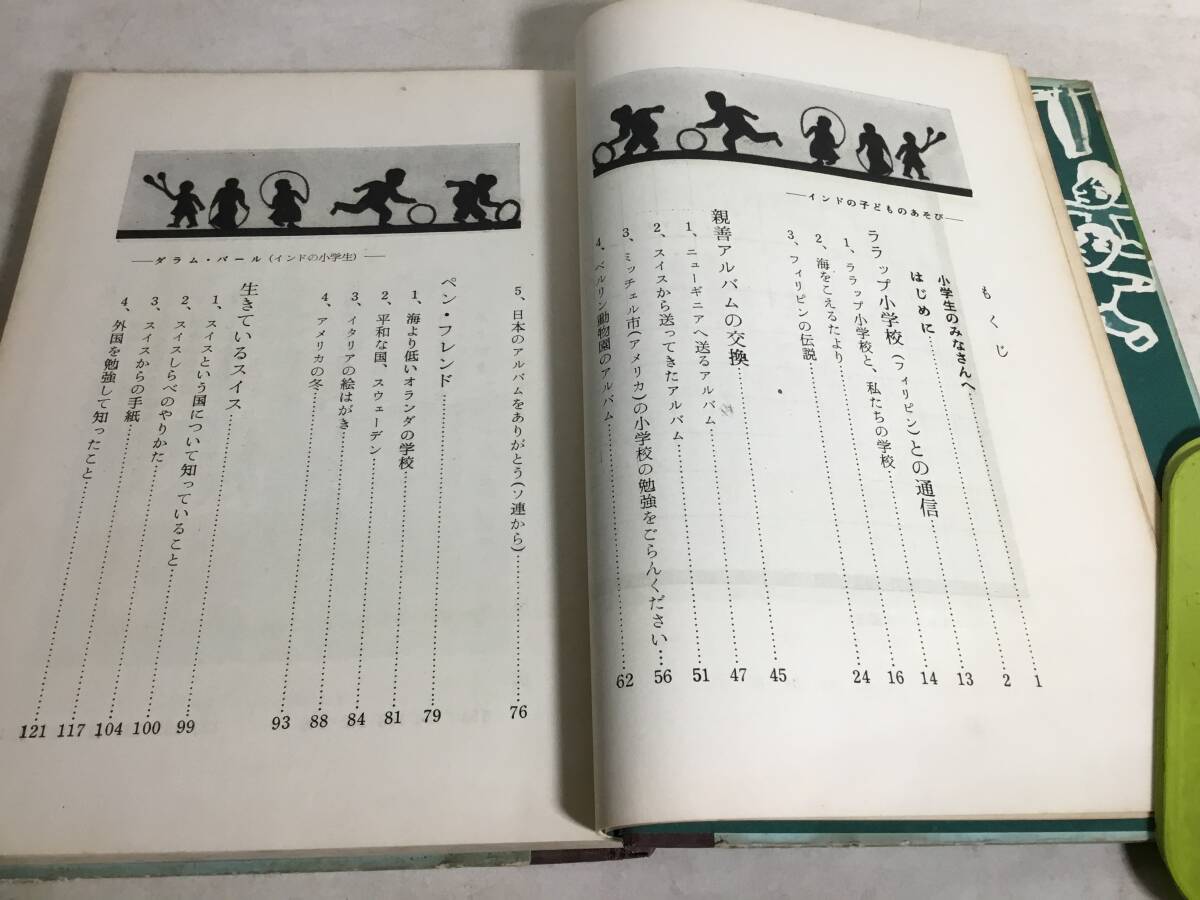 ——インドの子どものあそび——
もくじ
小学生のみなさんへ……1
はじめに……2
ララップ小学校(フィリピン)との通信……13
1、ララップ小学校と、私たちの学校……14
2、海をこえるたより……16
3、フィリピンの伝説……24
親善アルバムの交換……45
1、ニューギニアへ送るアルバム……47
2、スイスから送ってきたアルバム……51
3、ミッチェル市(アメリカ)の小学校の勉強をごらんください…56
4、ベルリン動物園のアルバム……62
——ダラム・パール(インドの小学生)——
5、日本のアルバムをありがとう(ソ連から)……76
ペン・フレンド……79
1、海より低いオランダの学校……81
2、平和な国、スウェーデン……84
3、イタリアの絵はがき……88
4、アメリカの冬……93
生きているスイス……99
1、スイスという国について知っていること……100
2、スイスしらべのやりかた……104
3、スイスからの手紙……117
4、外国を勉強して知ったこと……121